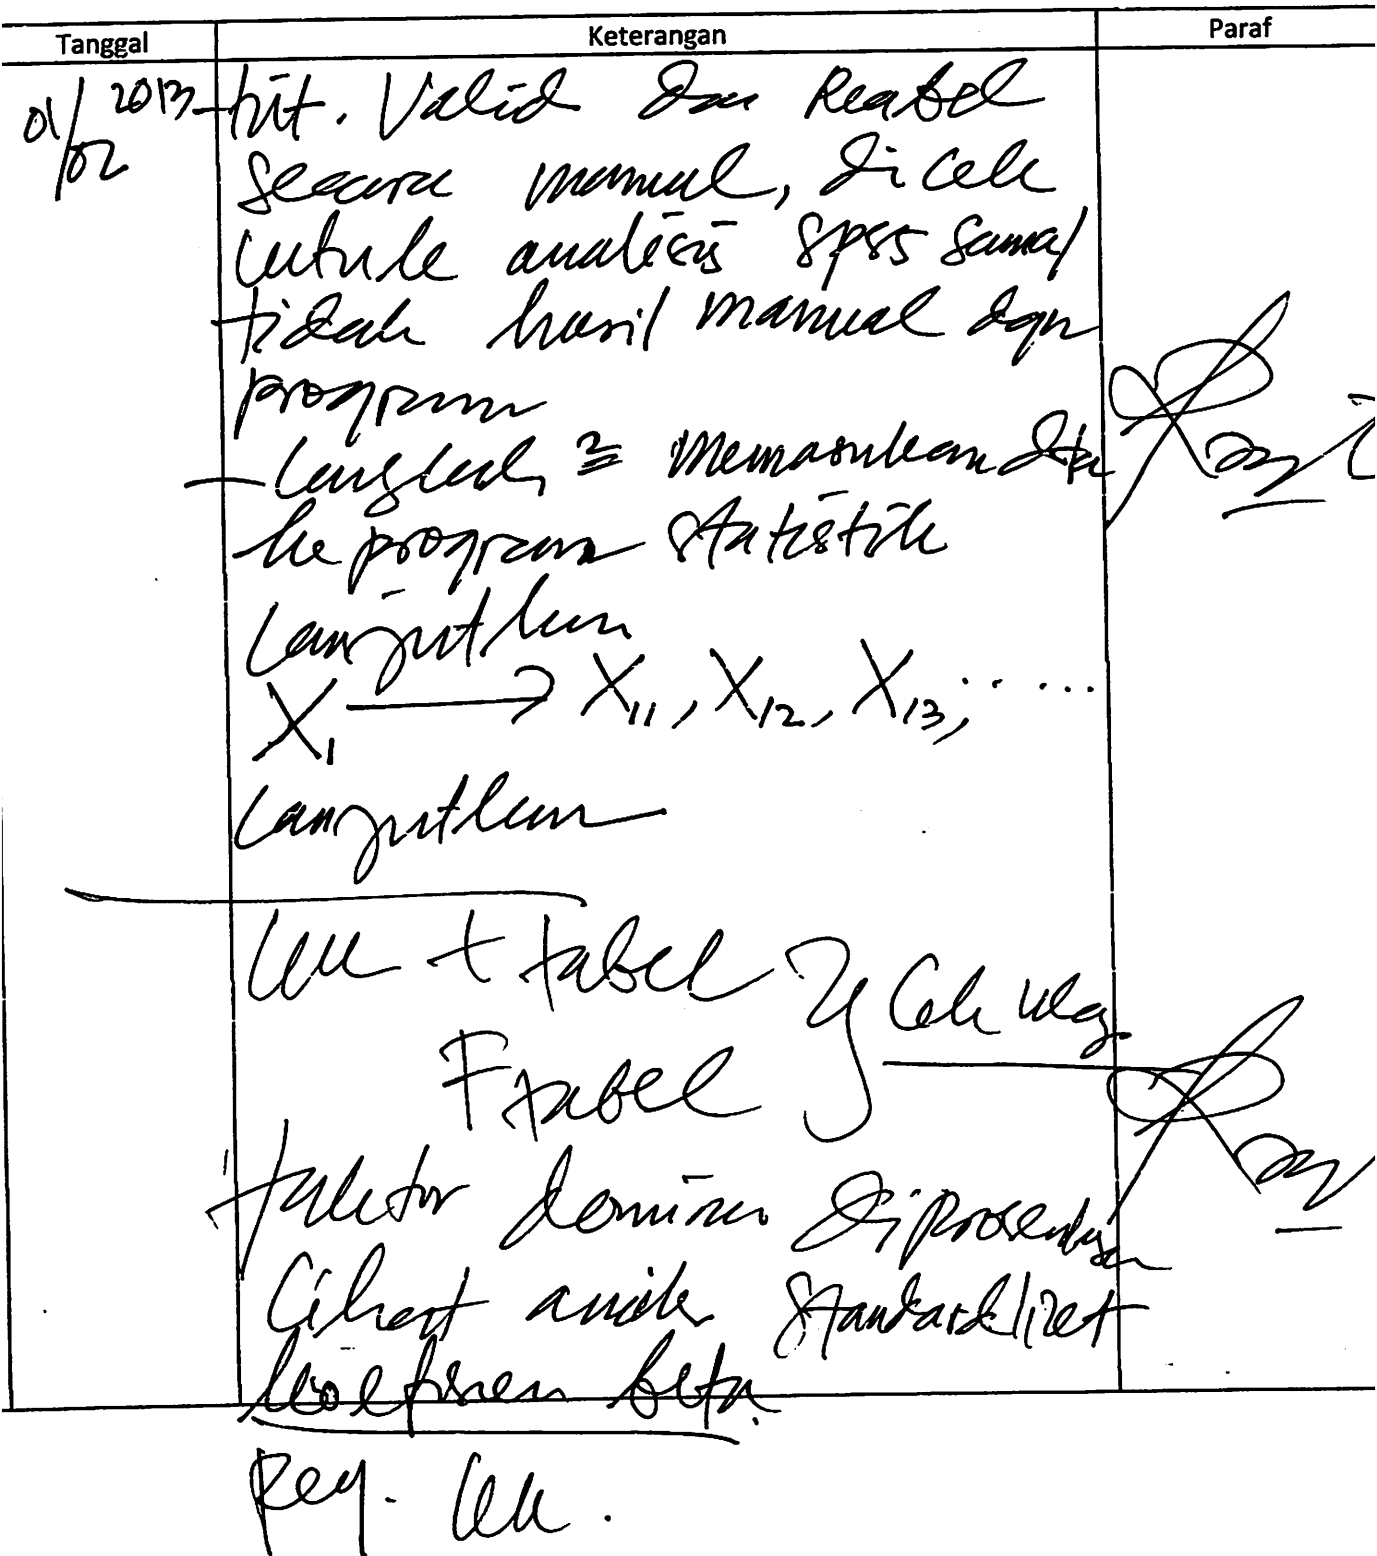 Tanggal Keterangan Paraf
01/02 2013 - tut. Valid dan Reabel
secara manual, dicek
untuk analisis SPSS sama/
tidak hasil manual dgn
program
- Langkah2 memasukan data
ke program statistik
Lanjutkan
X1 → X11, X12, X13, ......
Lanjutkan
t tabel } Cek ulg.
F tabel
faktor dominan diprosentasekan
Lihat standardlizet
koefisien beta.
Reg.